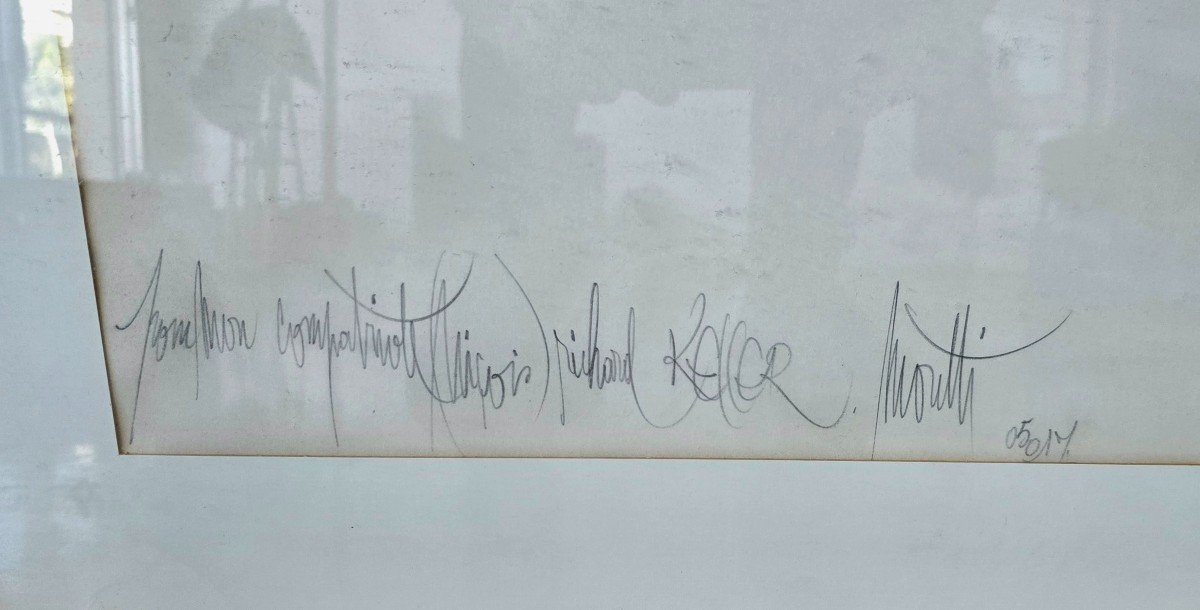 pour mon compatriote (Niçois) richard KELLER. Moretti